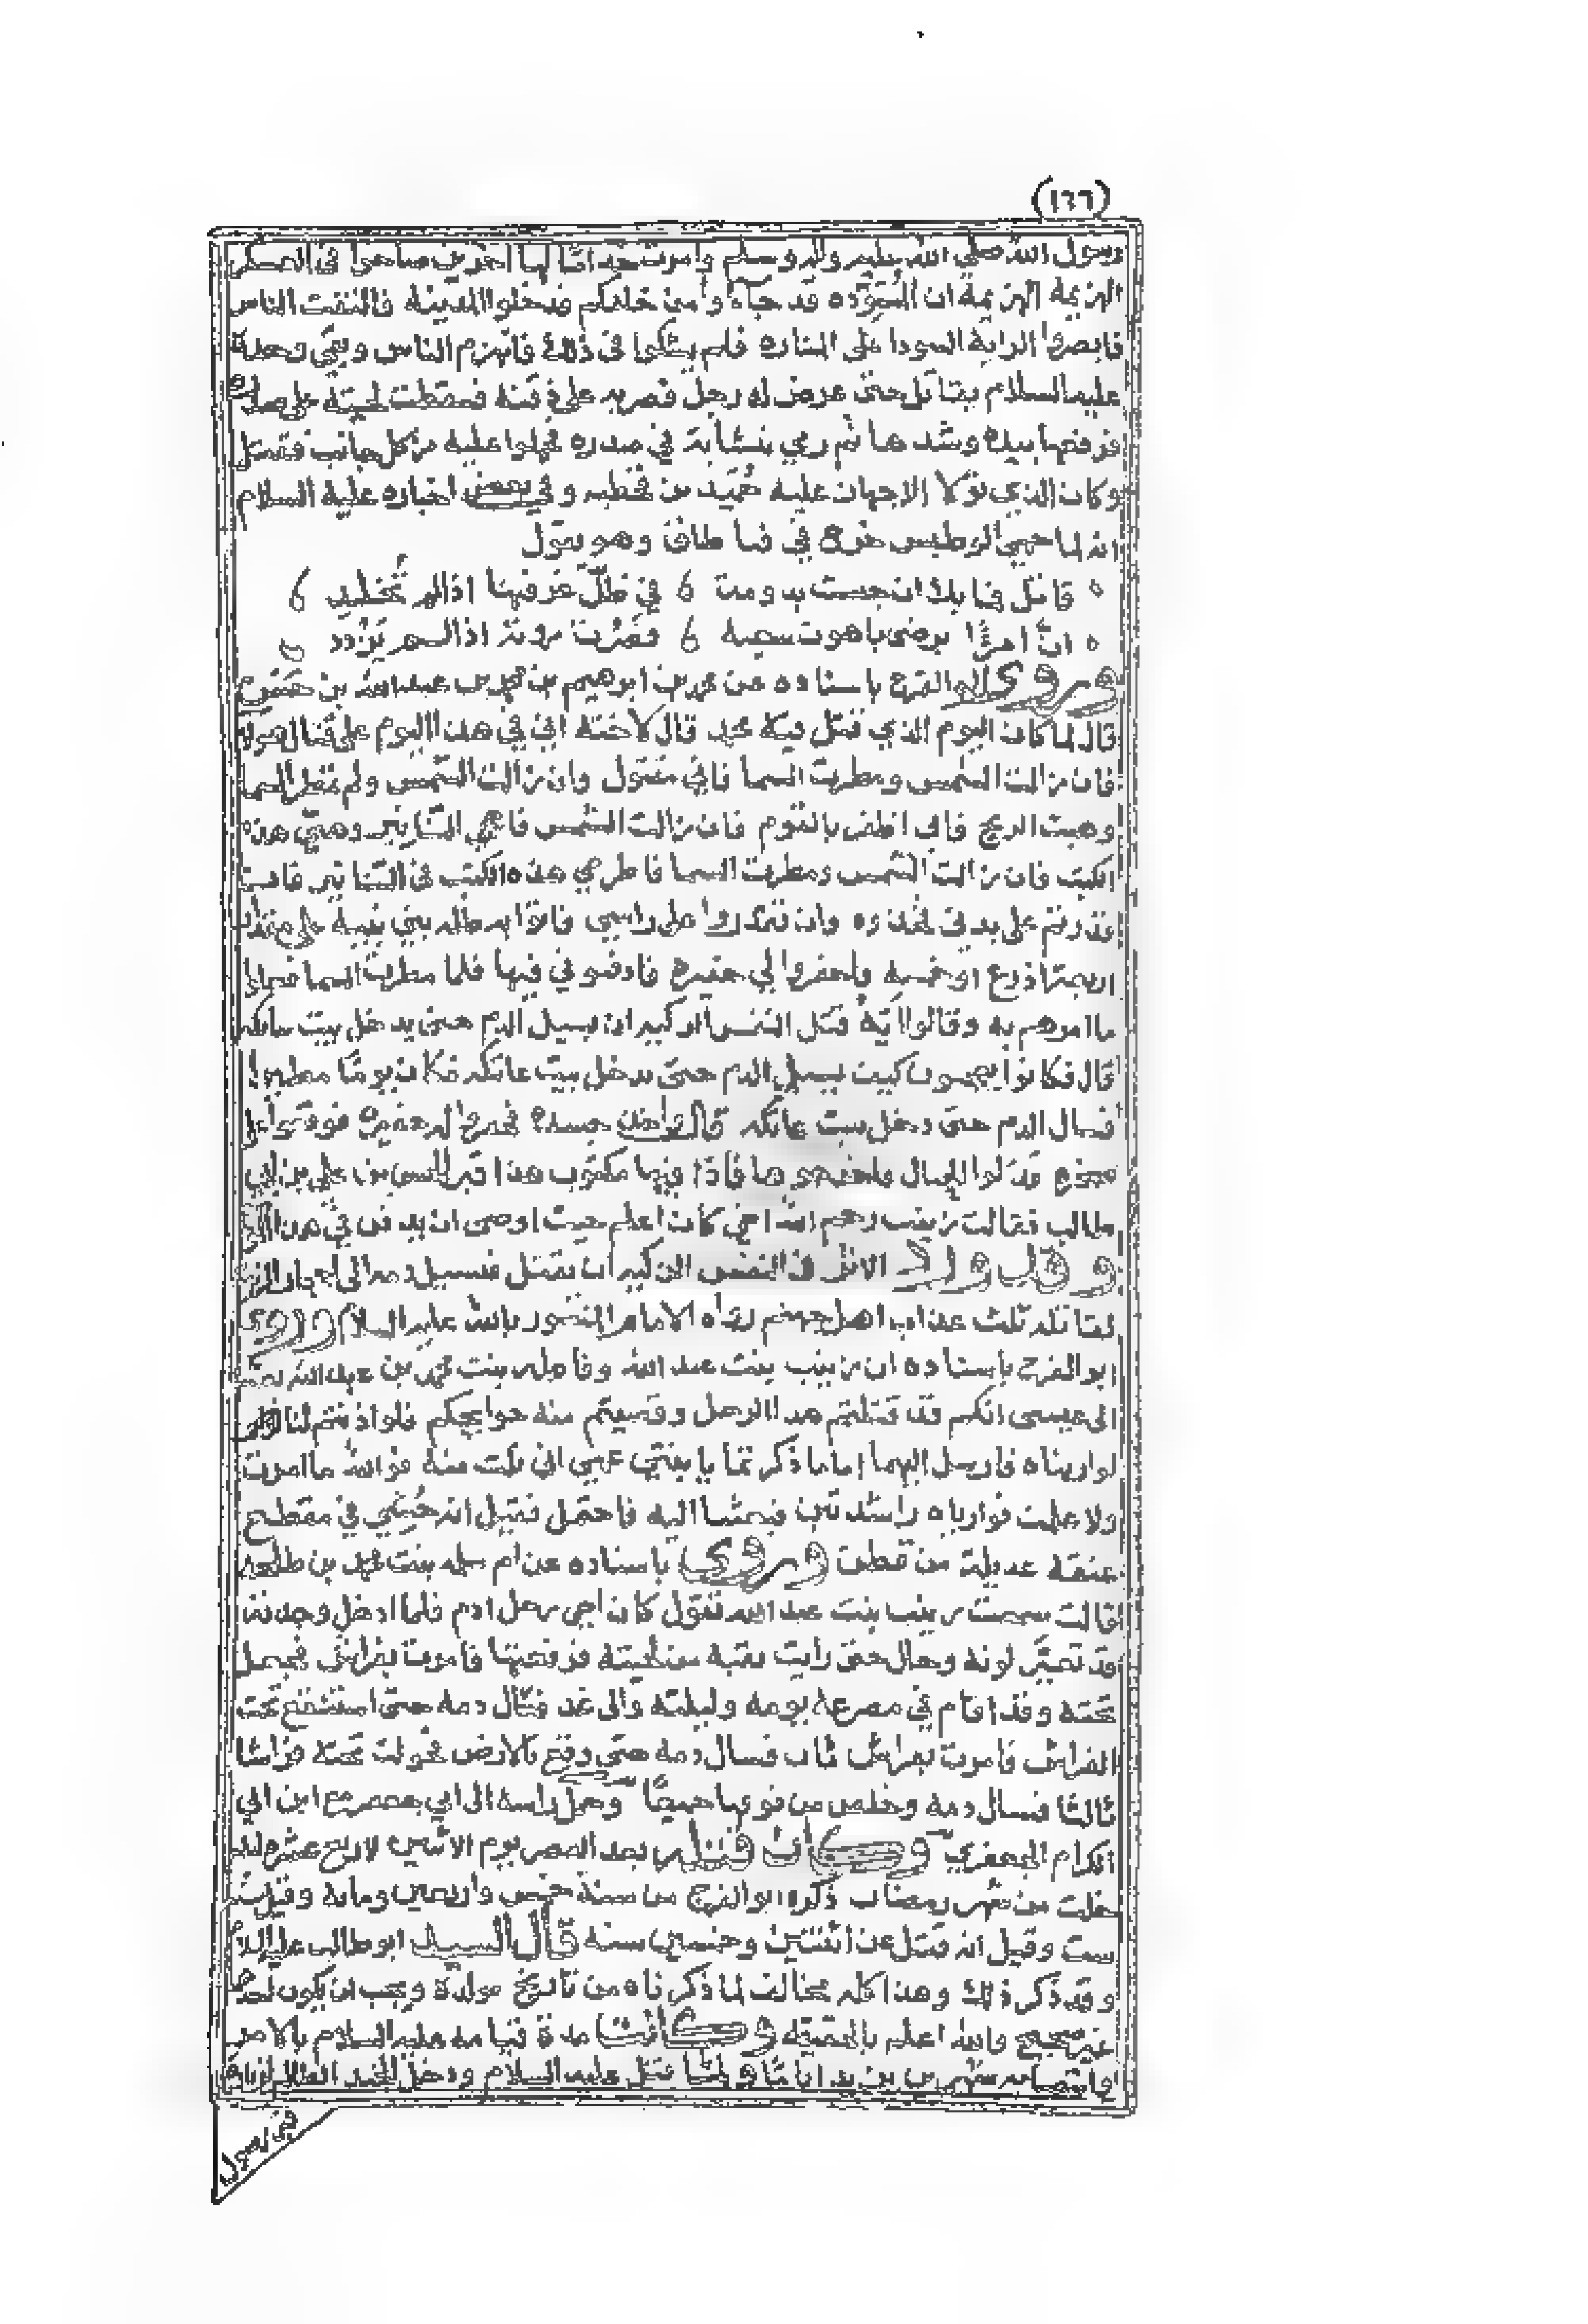 (١٦٦)
رسول الله صلى الله عليه واله وسلم وامرت اخرين صاحوا في العسكر
الهزيمة الهزيمة ان المسوّده قد جآءوا من خلفكم ودخلوا المدينة فالتفت الناس
فابصروا الراية السودا على المناره فلم يشكوا في ذلك فانهزم الناس وبقي وحده
عليه السلام يقاتل حتى عرض له رجل فضربه على ذقنه فسقطت لحيته على صدره
فرفعها بيده وشدها ثم رمي بنشابة في صدره فحملوا عليه من كل جانب فقتل
وكان الذي تولا الاجهاز عليه حُميد من قحطبه وفي بعض اخباره عليه السلام
انه لما حمي الوطيس خرج في فيا طاق وهو يقول
قاتل فما بك ان حبست به ومة في ظل غرفتها اذا لم تخلد
انّ امرًا يرضى باهون سعيه قصُرت مروته اذا لم يزدد
وروى ابو الفرج باسناده عن محمد بن ابرهيم بن محمد بن عبد الله بن
قال لما كان اليوم الذي قتل فيه محمد قال لاخته اني في هذا اليوم على قتال هؤلا
فان زالت الشمس ومطرت السما فاني مقتول وان زالت الشمس ولم تمطر السما
وهبت الريح فاني اظفر بالقوم فان زالت الشمس فاسجري التنانير وهيّي هذه
الكتب فان زالت الشمس ومطرت السما فاطرحي هذه الكتب في التنانير فان
قدرتم على بدني فخذوه وان تقدروا على راسي فاتوا به ظلة بني نبيه على مقدار
اربعة اذرع او خمسه واحفروا لي حفيرة وادفنوني فيها فلما مطرت السما فعلوا
ما امرهم به وقالوا آية قتل النفس الزكية ان يسيل الدم حتى يدخل بيت عاتكه
قال فكانوا يعجبون كيف يسيل الدم حتى يدخل بيت عاتكه فكان يومًا مطيرا
فسال الدم حتى دخل بيت عاتكه قال واخذ جسده فحفروا له حفيرة فوقعوا على
صخرة فمدلوا الحبال واخرجوها فاذا فيها مكتوب هذا قبر الحسن بن علي بن ابي
طالب فقالت زينب رحم الله اخي كان اعلم حيث اوصى ان يدفن في هذا الموضع
وقد ورد الاثر ان النفس الزكية ان يقتل فيسيل دمه الى احجار الزيت
لقاتله ثلث عذاب اهل جهنم رواه الامام المنصور بالله عليه السلام وروى
ابو الفرج باسناده ان زينب بنت عبد الله وفاطمه بنت محمد بن عبد الله بعثتا
الى عيسى انكم قد قتلتم هذا الرجل وقضيتم منه حوايجكم فلو اذنتم لنا
لواريناه فارسل اليهما اما ما ذكرتما يا بنتي عمي اني نلت منه فوالله ما امرت
ولا علمت فوارياه راشدتين فبعثتا اليه فاحتمل فقيل انه حُشي في مقطع
عنقه عديله من قطن وروى باسناده عن ام سلمه بنت محمد بن طلحه
قالت سمعت زينب بنت عبد الله تقول كان اخي رجل ادم فلما ادخل وجدته
قد تغيّر لونه وحال حتى رايت بقية من لحيته فعرفتها وامرت بفراش فجعل
تحته وقد اقام في مصرعه يومه وليلته والى غد فسال دمه حتى استنقع تحت
الفراش فامرت بفراش ثان فسال دمه حتى وقع بالارض فحولت تحته فراشا
ثالثا فسال دمه وخلص من فوقها جميعًا وحمل راسه الى ابي جعفر مع ابن ابي
الكرام الجعفري وكان قتله بعد العصر يوم الاثنين لاربع عشرة ليلة
خلت من شهر رمضان ذكره ابو الفرج من سنة خمس واربعين ومايه وقيل سنة
ست وقيل انه قتل عن اثنتين وخمسين سنه قال السيد ابو طالب عليه السلام
وقد ذكر ذلك وهذا كله مخالف لما ذكرناه من تاريخ مولده ويجب ان يكون
غير صحيح والله اعلم بالحقيقة وكانت مدة قيامه عليه السلام بالامر
وانتصابه شهرين اياما ولما قتل عليه السلام ودخل الجند
بن رسول